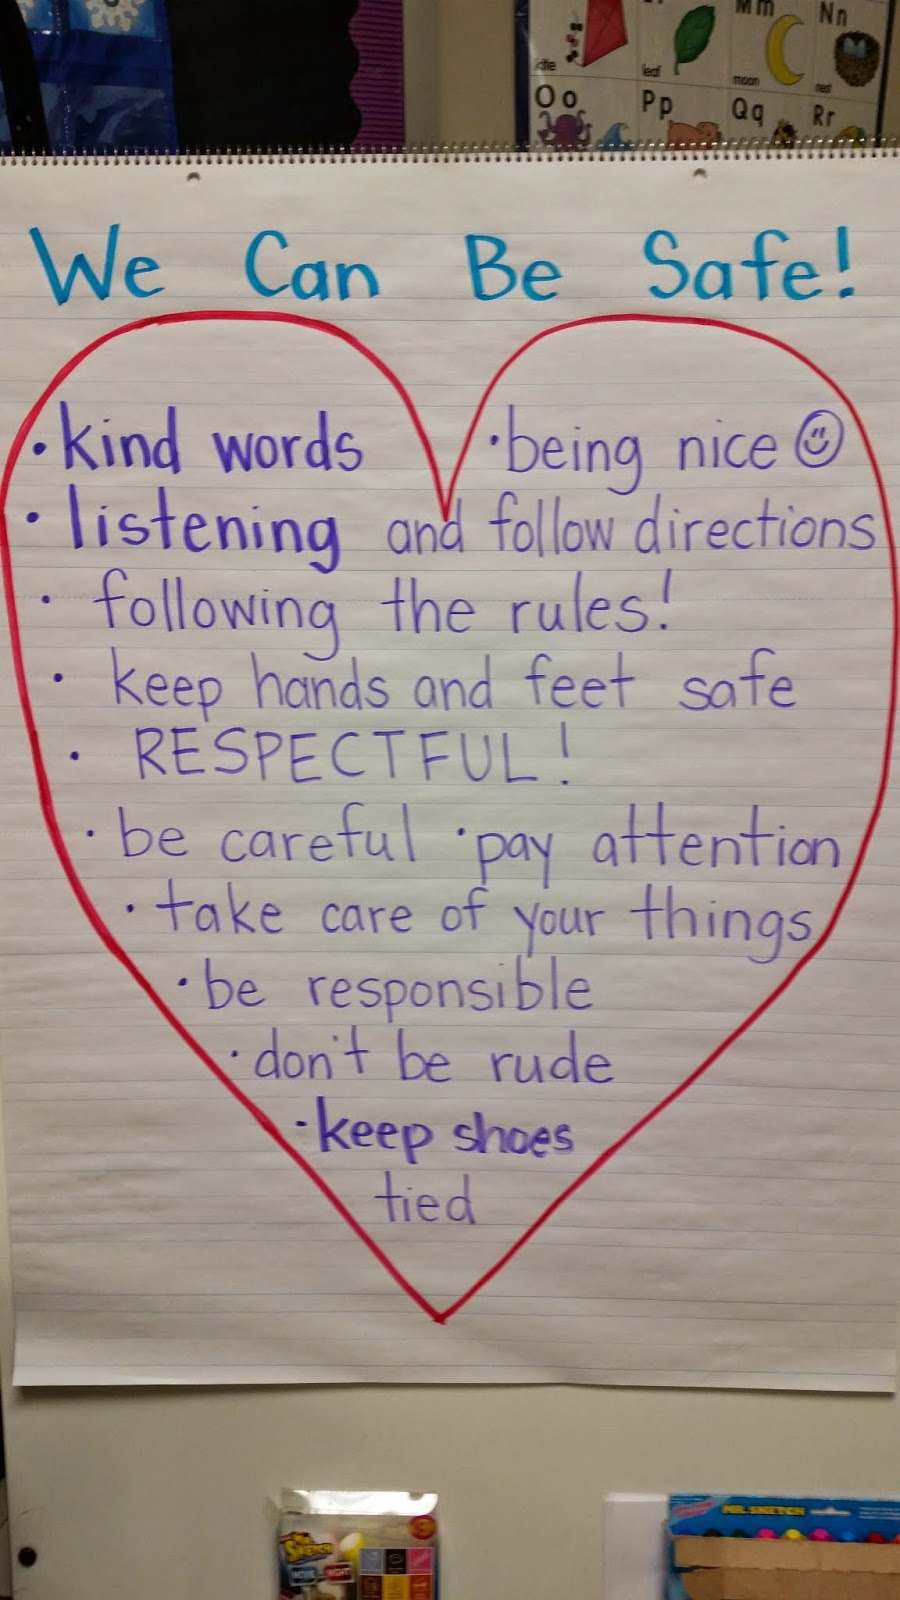 Mm Nn
kite leaf moon nest
Oo Pp Qq Rr
We Can Be Safe!
• kind words • being nice
• listening and follow directions
• following the rules!
• keep hands and feet safe
• RESPECTFUL!
• be careful • pay attention
• take care of your things
• be responsible
• don't be rude
• keep shoes
tied
MR. SKETCH